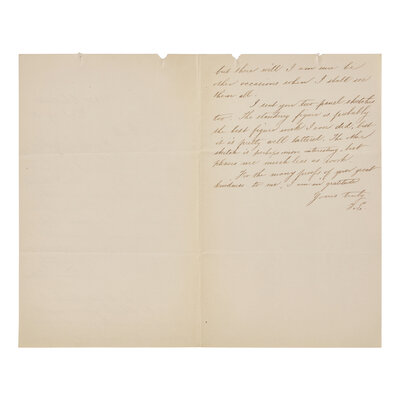 but there will I am sure be
other occasions when I shall see
them all.
I send you two panel sketches
too. The standing figure is probably
the best figure work I ever did, but
it is pretty well battered. The other
sketch is perhaps more interesting, but
phases are much less as work
For the many proofs of your great
kindness to me, I am in gratitude
Yours truly,